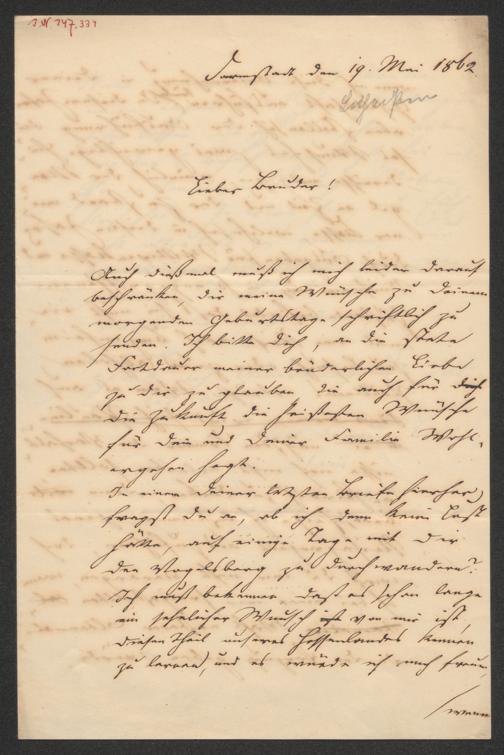 J.N 147.331
Darmstadt den 19. Mai 1862.
Lieber Bruder!
Auch dießmal muß ich mich leider darauf
beschränken, dir meine Wünsche zu Deinem
morgenden Geburtstage schriftlich zu
senden. Ich bitte Dich, an die stete
Fortdauer meiner brüderlichen Liebe
zu Dir zu glauben die auch für
die Zukunft die Wünsche
für Dein und Deiner Familie Wohl-
ergehen hegt.
In einem Deiner letzten Briefe hierher
fragst Du an, ob ich denn keine Lust
hätte, auf einige Tage mit Dir
den Vogelsberg zu durchwandern?
Ich muß bekennen daß es schon lange
ein sehnlicher Wunsch von mir ist,
diesen Theil unseres Hessenlandes kennen
zu lernen, und es würde ich mich freuen,
wenn